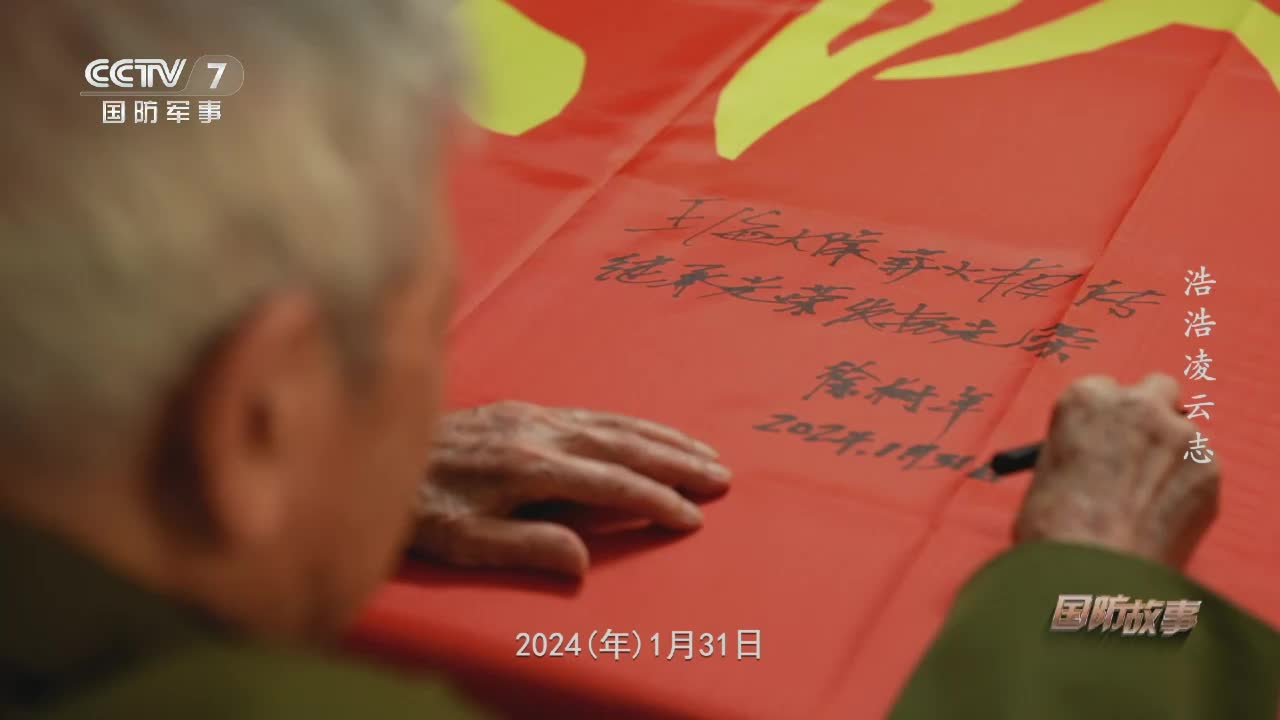 CCTV 7
国防军事
王海大队薪火相传
继承光荣发扬光荣
徐树平
2024.1月31日
浩浩凌云志
国防故事
2024(年)1月31日